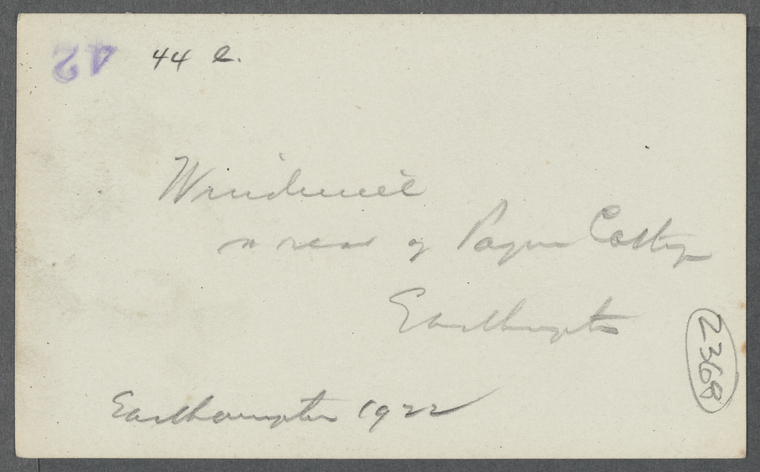 42 44 e.
Windmill
in rear of Payne Cottage
Easthampton
Easthampton 1922
2368